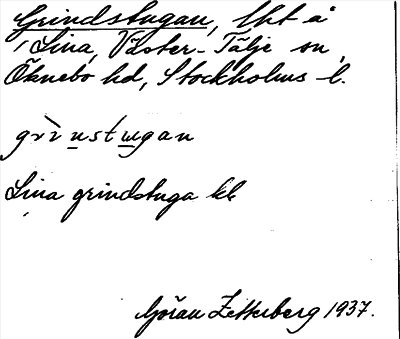 Grindstugan, lht å
Lina, Väster-Tälje sn,
Öknebo hd, Stockholms l.
grinstugan
Lina grindstuga kk
Göran Zetterberg 1937.